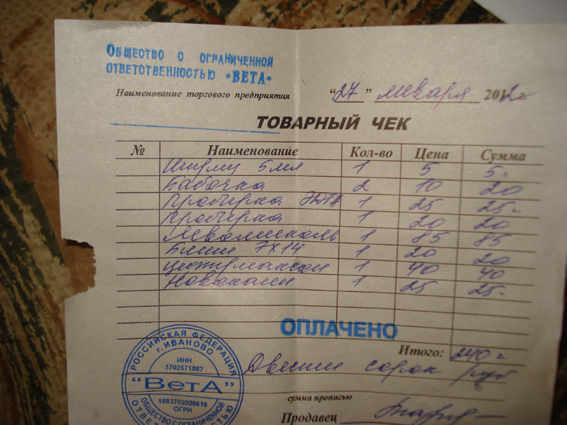 ОБЩЕСТВО С ОГРАНИЧЕННОЙ
ОТВЕТСТВЕННОСТЬЮ "ВЕТА"
Наименование торгового предприятия "27" января 2012 г.
ТОВАРНЫЙ ЧЕК
№ Наименование Кол-во Цена Сумма
Шприц 5мл 1 5 5-
Бабочка 2 10 20
Пробирка ЭДТА 1 25 25-
Пробирка 1 20 20
Левомеколь 1 85 85
Бинт 7х14 1 20 20
1 40 40
Новокаин 1 25 25-
ОПЛАЧЕНО
Итого: 240 г
Двести сорок руб
сумма прописью
Продавец
РОССИЙСКАЯ ФЕДЕРАЦИЯ
г. ИВАНОВО
ИНН
3702571067
"ВетА"
1083702026616
ОГРН
ОБЩЕСТВО С ОГРАНИЧЕННОЙ
ОТВЕТСТВЕННОСТЬЮ